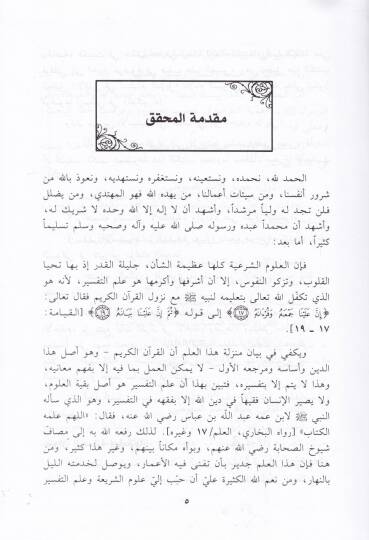 مقدمة المحقق
الحمد لله، نحمده، ونستعينه، ونستغفره ونستهديه، ونعوذ بالله من
شرور أنفسنا، ومن سيئات أعمالنا، من يهده الله فهو المهتدي، ومن يضلل
فلن تجد له ولياً مرشداً، وأشهد أن لا إله إلا الله وحده لا شريك له،
وأشهد أن محمداً عبده ورسوله صلى الله عليه وآله وصحبه وسلم تسليماً
كثيراً، أما بعد:
فإن العلوم الشرعية كلها عظيمة الشأن، جليلة القدر إذ بها تحيا
القلوب، وتزكو النفوس، إلا أن أشرفها وأكرمها هو علم التفسير، لأنه هو
الذي تكفّل الله تعالى بتعليمه لنبيه ﷺ مع نزول القرآن الكريم فقال تعالى:
﴿إِنَّ عَلَيْنَا جَمْعَهُ وَقُرْءَانَهُ ﴿١٧﴾﴾ إلى قوله ﴿ثُمَّ إِنَّ عَلَيْنَا بَيَانَهُ ﴿١٩﴾﴾ [القيامة:
١٧ - ١٩].
ويكفي في بيان منزلة هذا العلم أن القرآن الكريم - وهو أصل هذا
الدين وأساسه ومرجعه الأول - لا يمكن العمل بما فيه إلا بفهم معانيه،
وهذا لا يتم إلا بتفسيره، فتبين بهذا أن علم التفسير هو أصل بقية العلوم،
ولا يصير الإنسان فقيهاً في دين الله إلا بفقهه في التفسير، وهو الذي سأله
النبي ﷺ لابن عمه عبد الله بن عباس رضي الله عنه، فقال: «اللهم علمه
الكتاب» [رواه البخاري، العلم/١٧ وغيره]. لذلك رفعه الله به إلى مصافّ
شيوخ الصحابة رضي الله عنهم، وبوأه مكاناً بينهم، وغير هذا كثير، ومن
هنا فإن هذا العلم جدير بأن تفنى فيه الأعمار، ويوصل لخدمته الليل
بالنهار، ومن نعم الله الكثيرة عليّ أن حبّب إليّ علوم الشريعة وعلم التفسير
٥